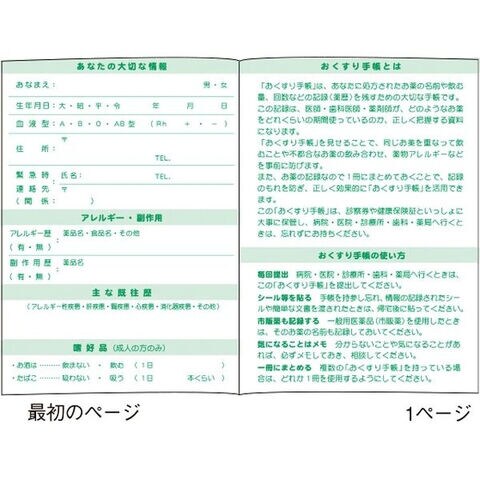 あなたの大切な情報
おなまえ： 男・女
生年月日：大・昭・平・令 年 月 日
血液型：A・B・O・AB型 （Rh ＋・－）
〒
住所：
TEL.
緊急時 氏名： TEL.
連絡先 〒
（関係：）
アレルギー・副作用
アレルギー歴：薬品名・食品名・その他
（有・無）
副作用歴：薬品名
（有・無）
主な既往歴
（アレルギー性疾患・肝疾患・腎疾患・心疾患・消化器疾患・その他）
嗜好品（成人の方のみ）
・お酒は …… 飲まない・ 飲む （１日 ）
・たばこ …… 吸わない・ 吸う （１日 本くらい）
最初のページ
おくすり手帳とは
「おくすり手帳」は、あなたに処方されたお薬の名前や飲む
量、回数などの記録（薬歴）を残すための大切な手帳です。
この記録は、医師・歯科医師・薬剤師が、どのようなお薬
をどれくらいの期間使っているのか、正しく把握する資料
になります。
「おくすり手帳」を見せることで、同じお薬を重ねて飲
むことや不都合なお薬の飲み合わせ、薬物アレルギーなど
を事前に防げます。
また、お薬の記録なので１冊にまとめておくことで、記録
のもれを防ぎ、正しく効果的に「おくすり手帳」を活用でき
ます。
この「おくすり手帳」は、診察券や健康保険証といっしょに
大事に保管し、病院・医院・診療所・歯科・薬局へ行くとき
は、忘れずにお持ちください。
おくすり手帳の使い方
毎回提出 病院・医院・診療所・歯科・薬局へ行くときは、
この「おくすり手帳」を提出してください。
シール等を貼る 手帳を持参し忘れ、情報の記録されたシー
ルや簡単な文書を渡されたときは、帰宅後に貼ってください。
市販薬も記録する 一般用医薬品（市販薬）を使用したとき
は、そのお薬の名前も記録しておいてください。
気になることはメモ 分からないことや気になることがあ
れば、必ずメモしておき、相談してください。
一冊にまとめる 複数の「おくすり手帳」を持っている場
合は、どれか１冊を使用するようにしてください。
1ページ